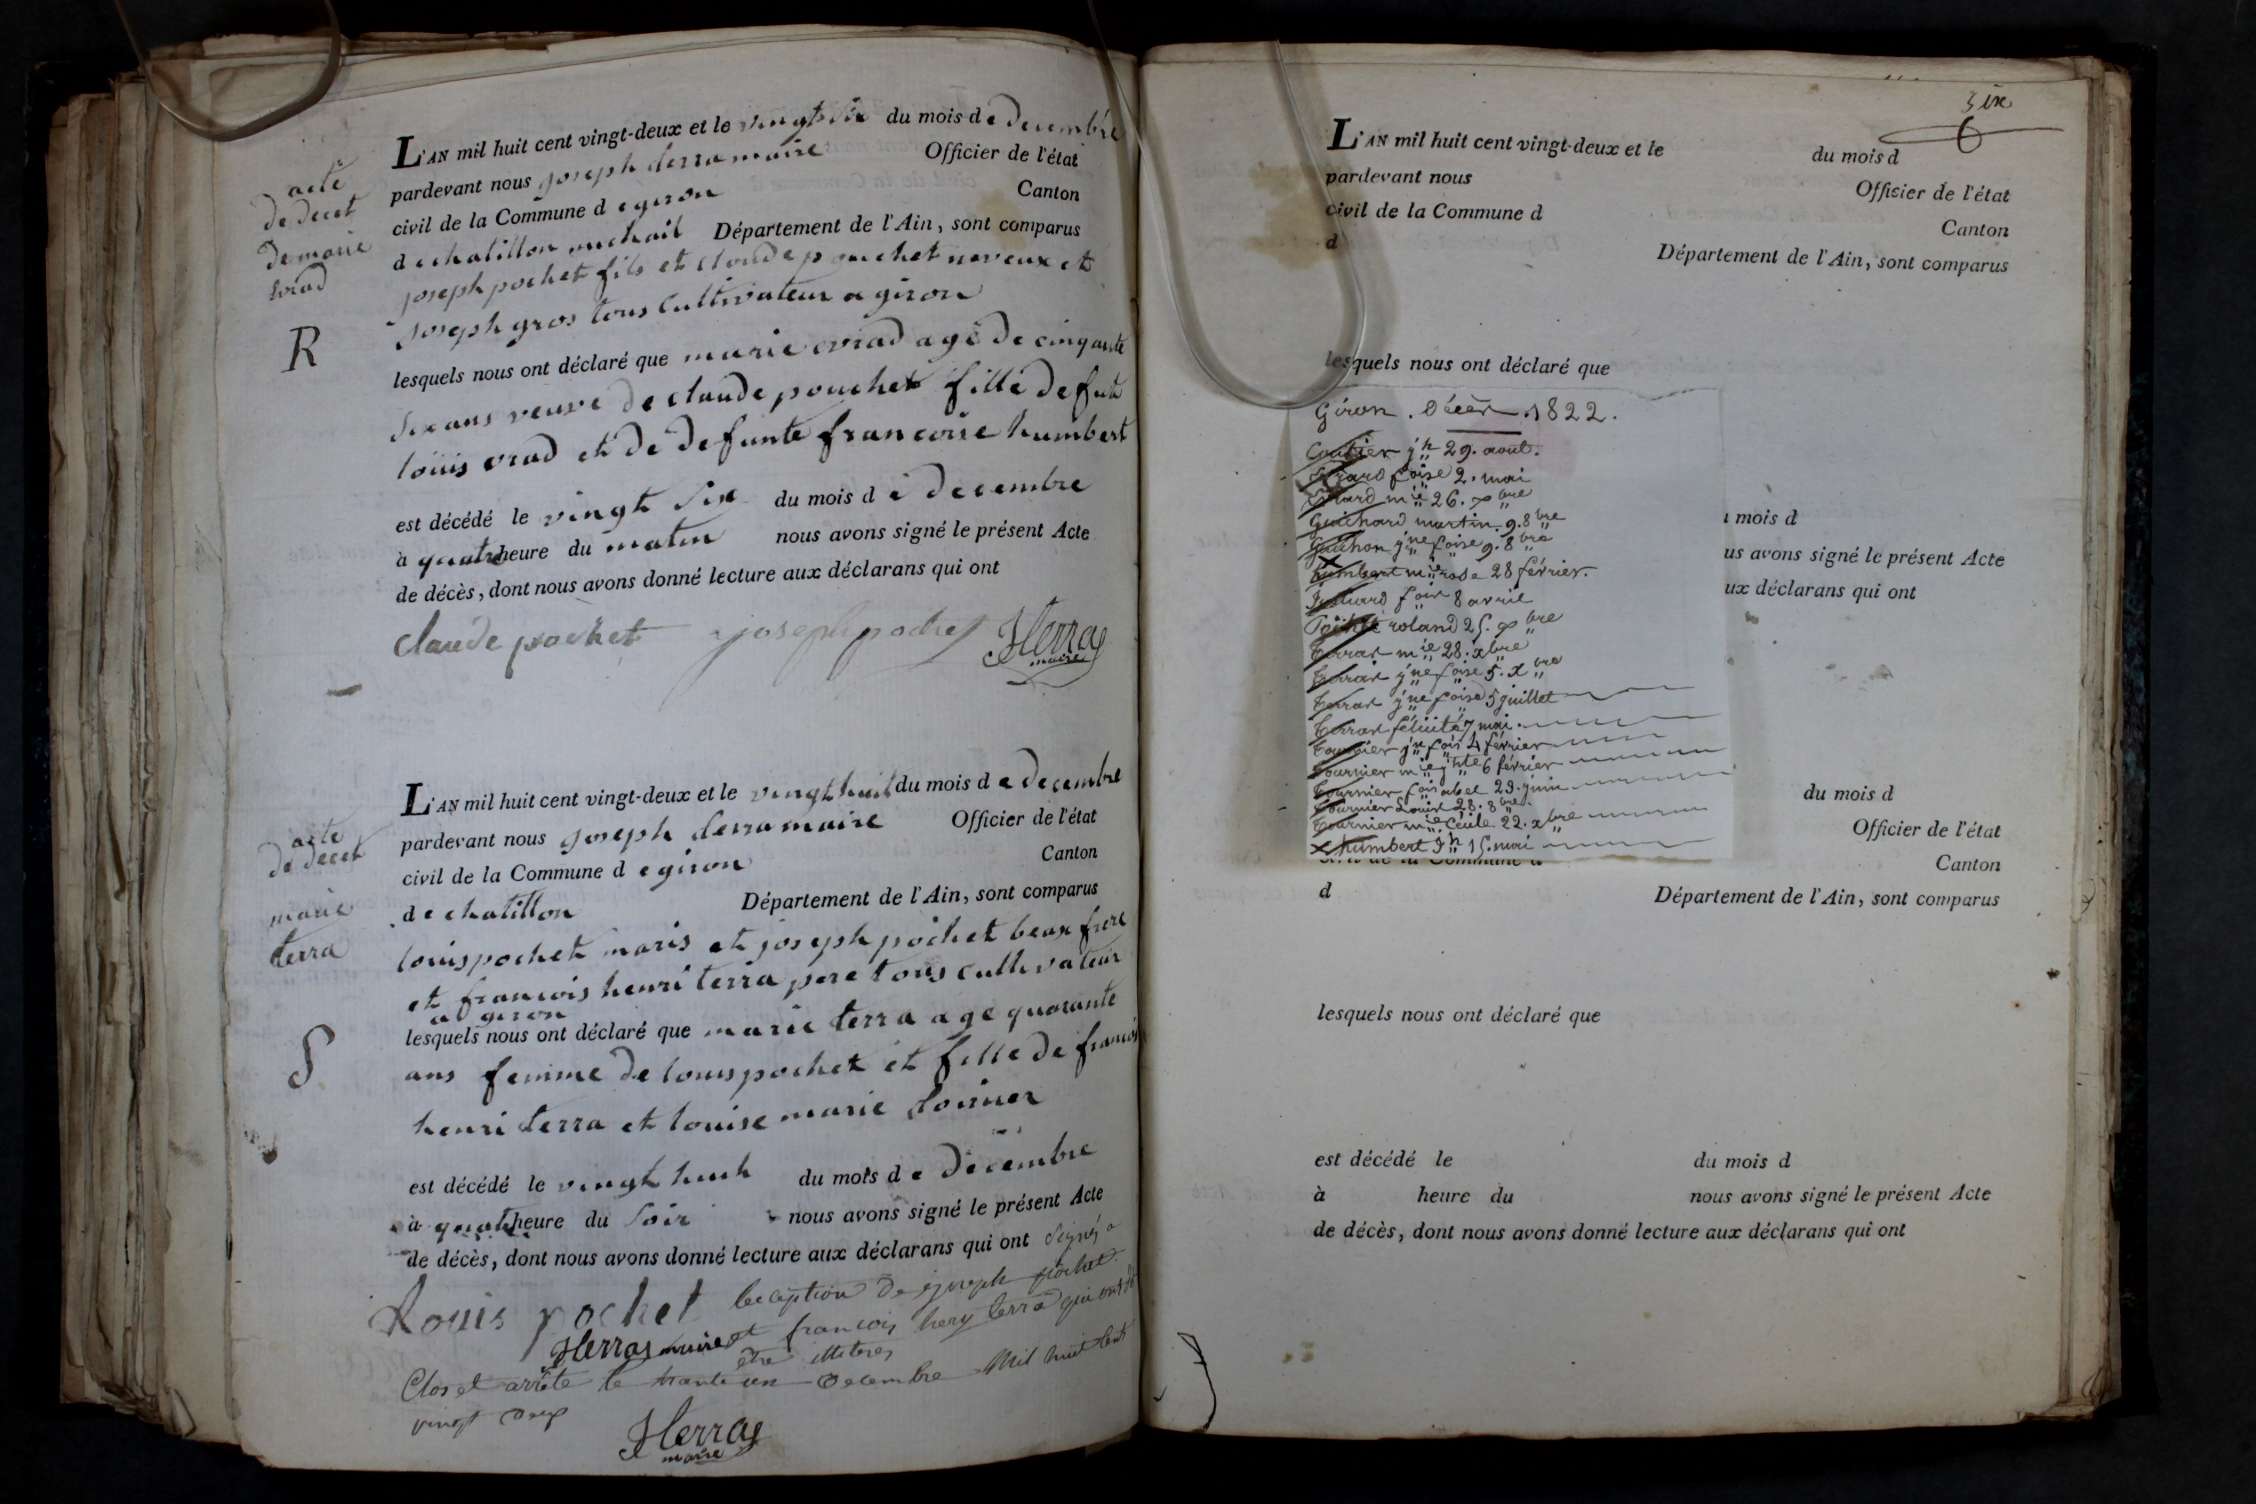 acte
de decet
de marie
vrad
R
L'AN mil huit cent vingt-deux et le vingt six du mois d e decembre
pardevant nous joseph derra maire Officier de l'état
civil de la Commune d e giron Canton
d e chatillon michail Département de l'Ain, sont comparus
joseph pochet fils et cloude pouchet neveux et
joseph gros tous cultivateur a giron
lesquels nous ont déclaré que marie vrad agé de cinquante
six ans veuve de claude pouchet fille defut
louis vrad et de defunte francoise humbert
est décédé le vingt six du mois d e decembre
à quatre heure du matin nous avons signé le présent Acte
de décès, dont nous avons donné lecture aux déclarans qui ont
claude pochet joseph pochet JHerra
maire
acte
de decet
marie
terra
S
L'AN mil huit cent vingt-deux et le vingt huit du mois d e decembre
pardevant nous joseph derra maire Officier de l'état
civil de la Commune d e giron Canton
d e chatillon Département de l'Ain, sont comparus
louis pochet maris et joseph pochet beax frere
et francois henri terra pere tous cultivateur
a giron
lesquels nous ont déclaré que marie terra age quarante
ans femme de louis pochet et fille de francois
henri terra et louise marie
est décédé le vingt huit du mois d e decembre
à quatre heure du soir nous avons signé le présent Acte
de décès, dont nous avons donné lecture aux déclarans qui ont signés a
Louis pochet leception de joseph pochet
JHerra maire et francois hery terra qui ont dit
être
Clos et arrête le trante un Decembre Mil huit Cent
vingt deux
JHerra
maire
six
6
L'AN mil huit cent vingt-deux et le du mois d
pardevant nous Officier de l'état
civil de la Commune d Canton
d Département de l'Ain, sont comparus
lesquels nous ont déclaré que
Giron. Décès 1822.
Coutier jh 29. aout.
Evrard foise 2. mai
Evrard mie 26. xbre
Guichard martin. 9. 8bre
Guichon jne foise 9. 8bre
humbert mie rose 28 février.
Juliard fois 8 avril
Pochet roland 25. xbre
Terrar mie 28. xbre
Terrar jne foise 5. xbre
Terrar jne foise 5 juillet
Terrar félicité 7 mai.
Tournier jn fois 4 février
Tournier mie jnte 6 février
Tournier fois abel 29. juin
Tournier Louis 28. 8bre.
Tournier mie Cécile 22. xbre
x humbert jh 15. mai
mois d
us avons signé le présent Acte
ux déclarans qui ont
du mois d
Officier de l'état
de la Commune d Canton
d Département de l'Ain, sont comparus
lesquels nous ont déclaré que
est décédé le du mois d
à heure du nous avons signé le présent Acte
de décès, dont nous avons donné lecture aux déclarans qui ont